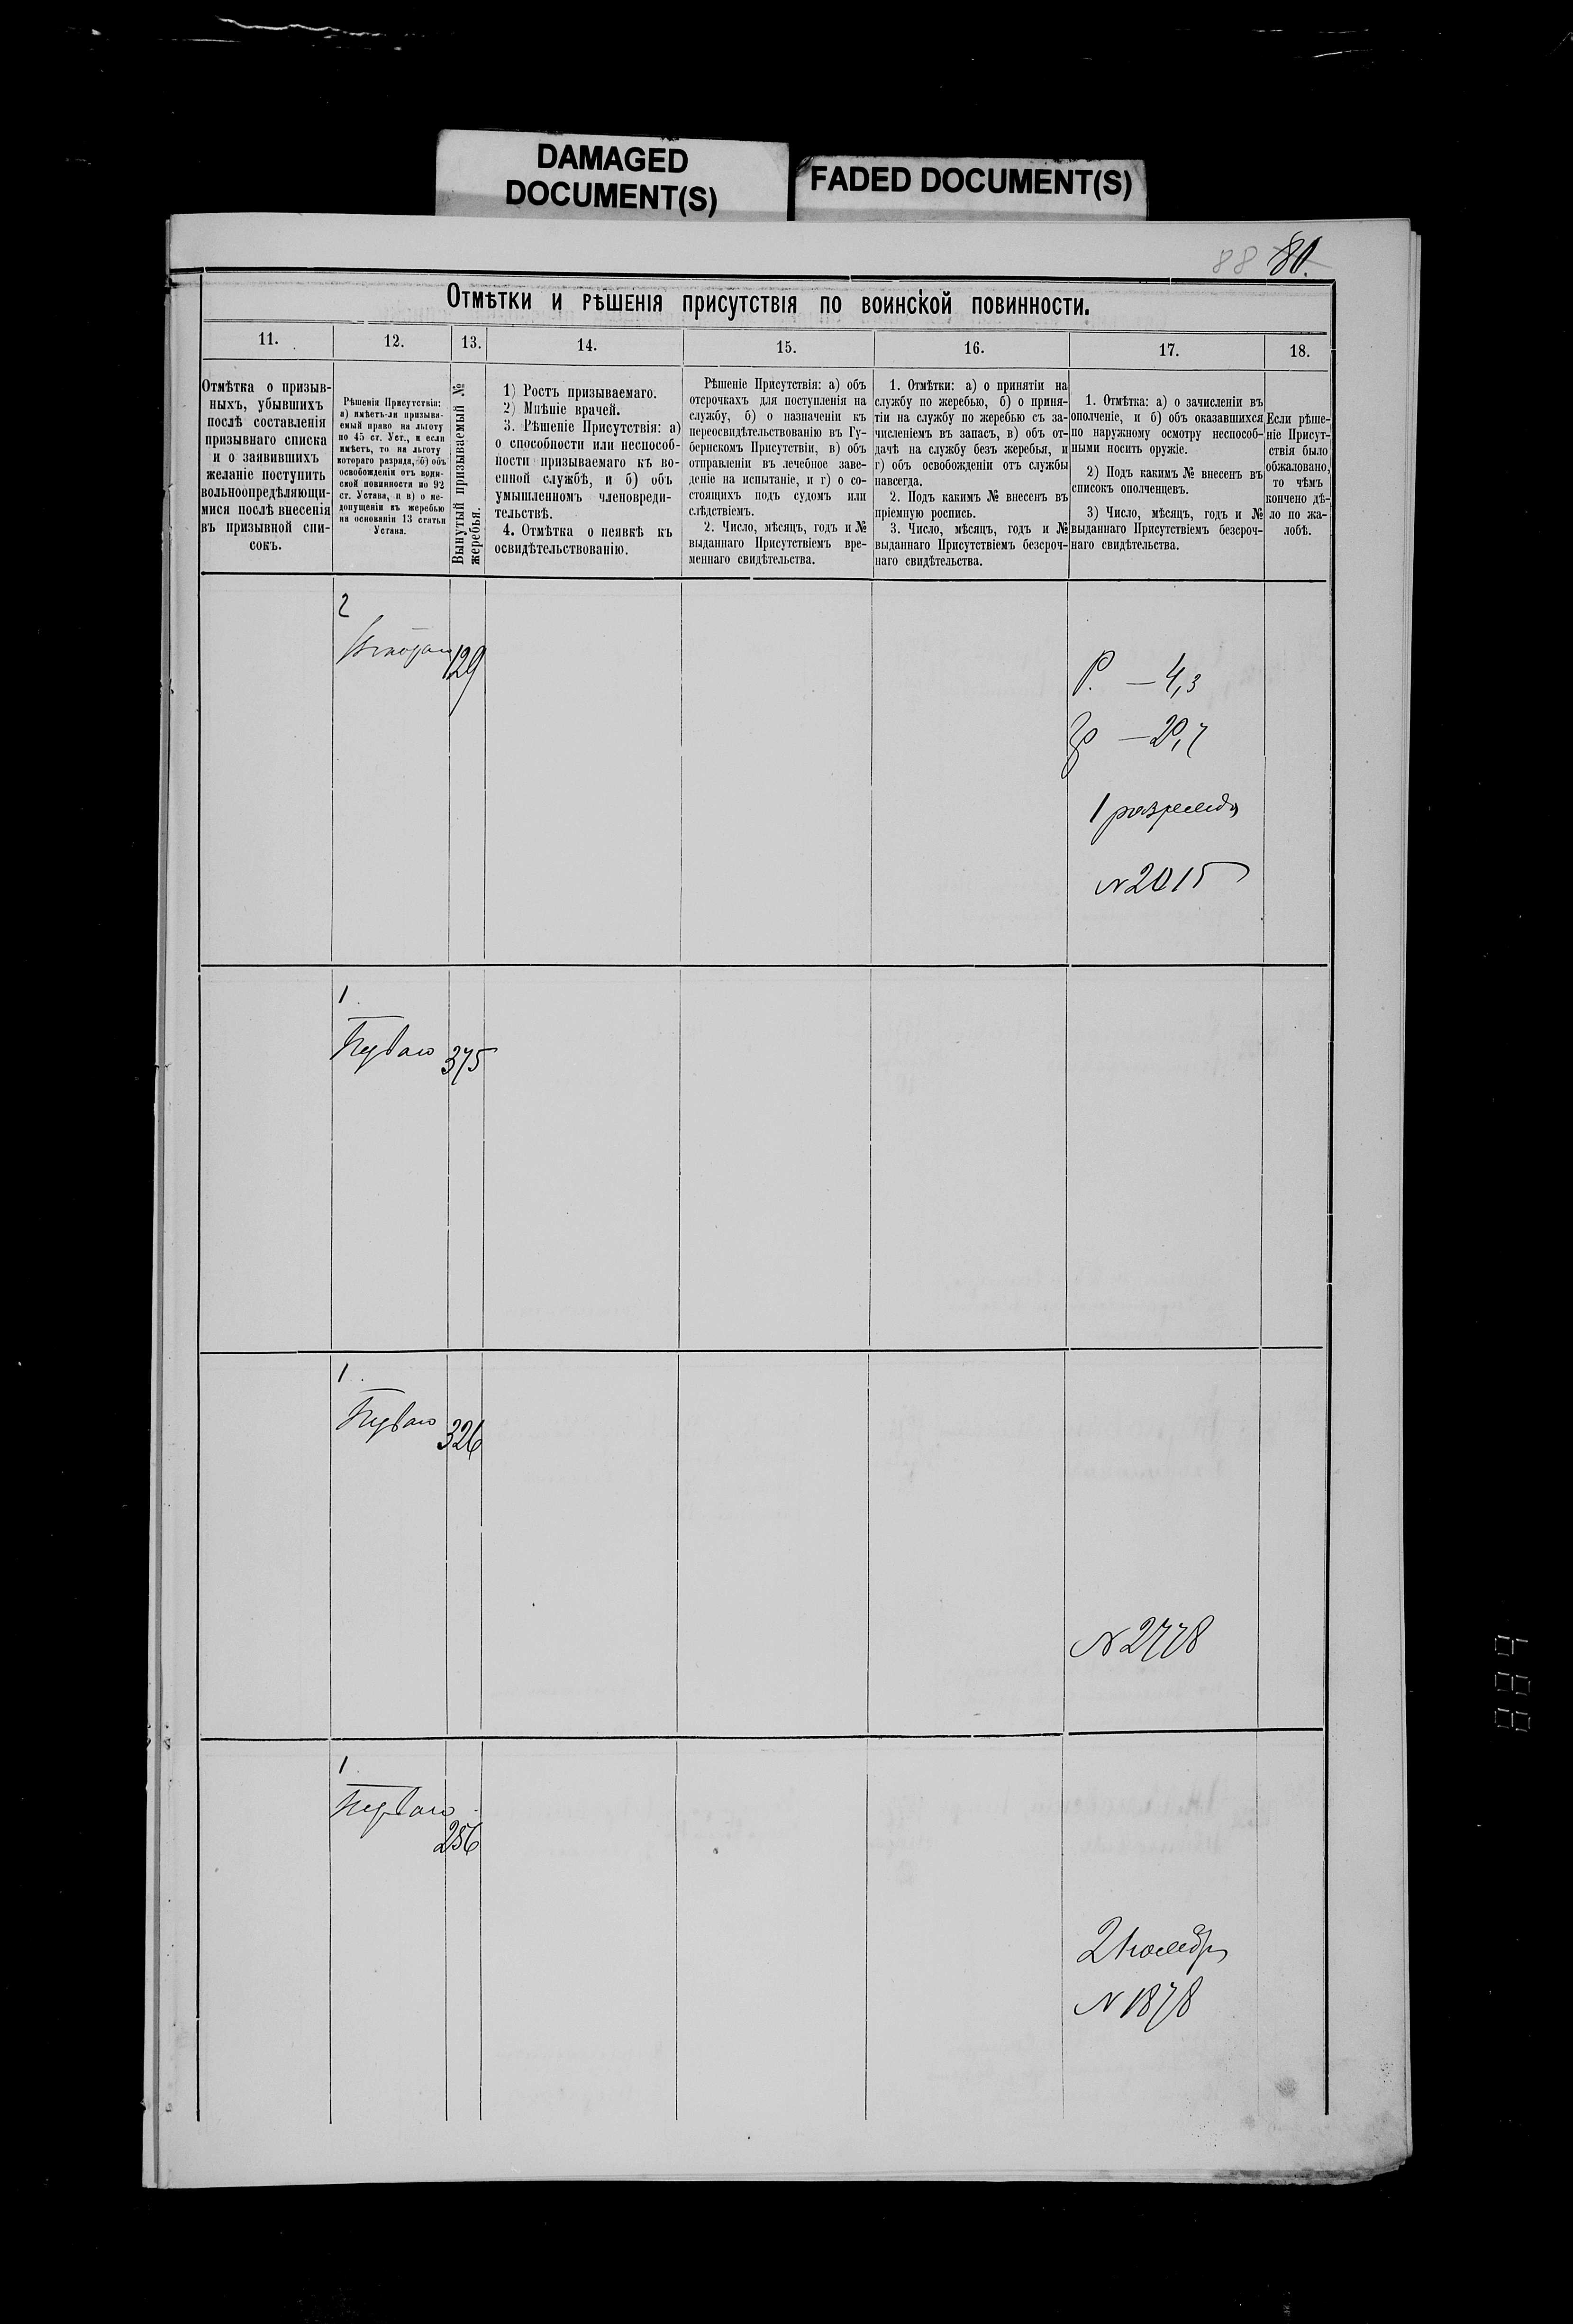 DAMAGED
DOCUMENT(S)
FADED DOCUMENT(S)
88 80.
Отмѣтки и рѣшенія присутствія по воинской повинности.
11.
12.
13.
14.
15.
16.
17.
18.
Отмѣтка о призыв-
ныхъ, убывшихъ
послѣ составленія
призывнаго списка
и о заявившихъ
желаніе поступить
вольноопредѣляющи-
мися послѣ внесенія
въ призывной спи-
сокъ.
Рѣшенія Присутствія:
а) имѣетъ-ли призыва-
емый право на льготу
по 45 ст. Уст., и если
имѣетъ, то на льготу
котораго разряда, б) объ
освобожденіи отъ воин-
ской повинности по 92
ст. Устава, и в) о не-
допущеніи къ жеребью
на основаніи 13 статьи
Устава.
Вынутый призываемый №
жеребья.
1) Ростъ призываемаго.
2) Мнѣніе врачей.
3. Рѣшеніе Присутствія: а)
о способности или неспособ-
ности призываемаго къ во-
енной службѣ, и б) объ
умышленномъ членовреди-
тельствѣ.
4. Отмѣтка о неявкѣ къ
освидѣтельствованію.
Рѣшеніе Присутствія: а) объ
отсрочкахъ для поступленія на
службу, б) о назначеніи къ
переосвидѣтельствованію въ Гу-
бернскомъ Присутствіи, в) объ
отправленіи въ лечебное заве-
деніе на испытаніе, и г) о со-
стоящихъ подъ судомъ или
слѣдствіемъ.
2. Число, мѣсяцъ, годъ и №
выданнаго Присутствіемъ вре-
меннаго свидѣтельства.
1. Отмѣтки: а) о принятіи на
службу по жеребью, б) о приня-
тіи на службу по жеребью съ за-
численіемъ въ запасъ, в) объ от-
дачѣ на службу безъ жеребья, и
г) объ освобожденіи отъ службы
навсегда.
2. Подъ какимъ № внесенъ въ
пріемную роспись.
3. Число, мѣсяцъ, годъ и №
выданнаго Присутствіемъ безсроч-
наго свидѣтельства.
1. Отмѣтка: а) о зачисленіи въ
ополченіе, и б) объ оказавшихся
по наружному осмотру неспособ-
ными носить оружіе.
2) Подъ какимъ № внесенъ въ
списокъ ополченцевъ.
3) Число, мѣсяцъ, годъ и №
выданнаго Присутствіемъ безсроч-
наго свидѣтельства.
Если рѣше-
ніе Присут-
ствія было
обжаловано,
то чѣмъ
кончено дѣ-
ло по жа-
лобѣ.
2
Втораго
129
Р. — 4,3
— 20,7
1 разряда
№ 2015
1
Перваго
375
1
Перваго
326
№ 2778
1
Перваго
256
2 ноября
№ 1878
889